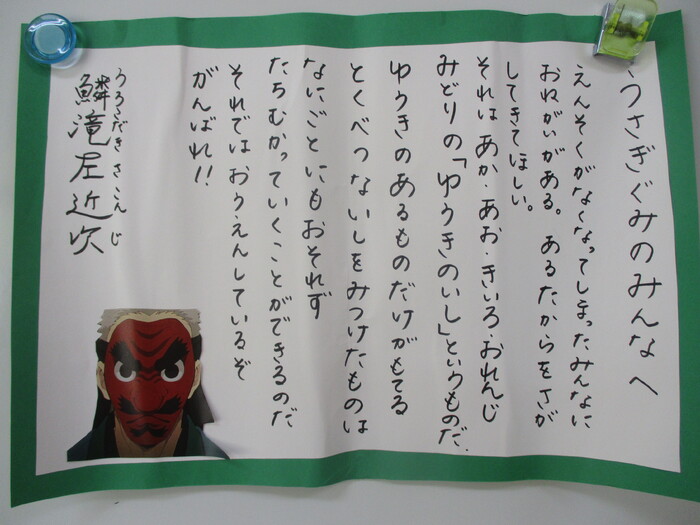 うさぎぐみのみんなへ
えんそくがなくなってしまったみんなに
おねがいがある。 あるたからをさが
してきてほしい。
それは あか・あお・きいろ・おれんじ
みどりの「ゆうきのいし」というものだ。
ゆうきのあるものだけがもてる
とくべつないしをみつけたものは
なにごとにもおそれず
たちむかっていくことができるのだ
それではおうえんしているぞ
がんばれ!!
うろこだき さこんじ
鱗滝左近次